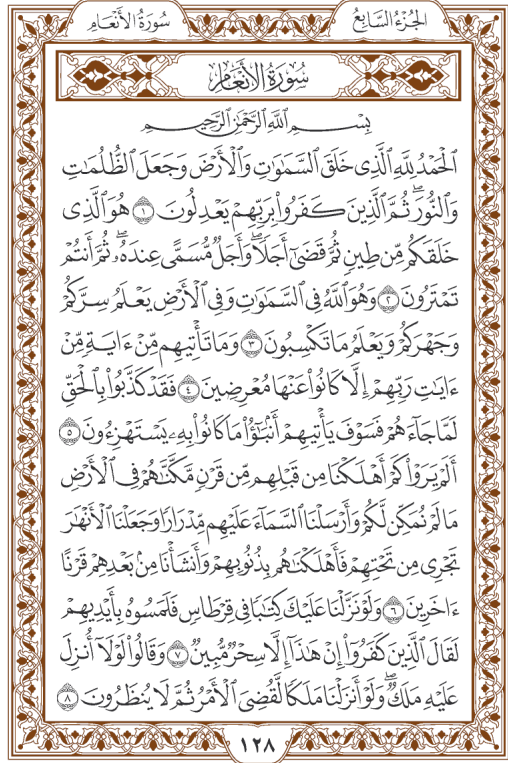 الجزء السابع
سورة الأنعام
سُورَةُ الأَنعَام
بِسْمِ ٱللَّهِ ٱلرَّحْمَٰنِ ٱلرَّحِيمِ
ٱلْحَمْدُ لِلَّهِ ٱلَّذِى خَلَقَ ٱلسَّمَٰوَٰتِ وَٱلْأَرْضَ وَجَعَلَ ٱلظُّلُمَٰتِ
وَٱلنُّورَ ۖ ثُمَّ ٱلَّذِينَ كَفَرُوا۟ بِرَبِّهِمْ يَعْدِلُونَ ١ هُوَ ٱلَّذِى
خَلَقَكُم مِّن طِينٍ ثُمَّ قَضَىٰٓ أَجَلًا ۖ وَأَجَلٌ مُّسَمًّى عِندَهُۥ ۖ ثُمَّ أَنتُمْ
تَمْتَرُونَ ٢ وَهُوَ ٱللَّهُ فِى ٱلسَّمَٰوَٰتِ وَفِى ٱلْأَرْضِ يَعْلَمُ سِرَّكُمْ
وَجَهْرَكُمْ وَيَعْلَمُ مَا تَكْسِبُونَ ٣ وَمَا تَأْتِيهِم مِّنْ ءَايَةٍ مِّنْ
ءَايَٰتِ رَبِّهِمْ إِلَّا كَانُوا۟ عَنْهَا مُعْرِضِينَ ٤ فَقَدْ كَذَّبُوا۟ بِٱلْحَقِّ
لَمَّا جَآءَهُمْ فَسَوْفَ يَأْتِيهِمْ أَنۢبَٰٓؤُا۟ مَا كَانُوا۟ بِهِۦ يَسْتَهْزِءُونَ ٥
أَلَمْ يَرَوْا۟ كَمْ أَهْلَكْنَا مِن قَبْلِهِم مِّن قَرْنٍ مَّكَّنَّٰهُمْ فِى ٱلْأَرْضِ
مَا لَمْ نُمَكِّن لَّكُمْ وَأَرْسَلْنَا ٱلسَّمَآءَ عَلَيْهِم مِّدْرَارًا وَجَعَلْنَا ٱلْأَنْهَٰرَ
تَجْرِى مِن تَحْتِهِمْ فَأَهْلَكْنَٰهُم بِذُنُوبِهِمْ وَأَنشَأْنَا مِنۢ بَعْدِهِمْ قَرْنًا
ءَاخَرِينَ ٦ وَلَوْ نَزَّلْنَا عَلَيْكَ كِتَٰبًا فِى قِرْطَاسٍ فَلَمَسُوهُ بِأَيْدِيهِمْ
لَقَالَ ٱلَّذِينَ كَفَرُوٓا۟ إِنْ هَٰذَآ إِلَّا سِحْرٌ مُّبِينٌ ٧ وَقَالُوا۟ لَوْلَآ أُنزِلَ
عَلَيْهِ مَلَكٌ ۖ وَلَوْ أَنزَلْنَا مَلَكًا لَّقُضِىَ ٱلْأَمْرُ ثُمَّ لَا يُنظَرُونَ ٨
١٢٨